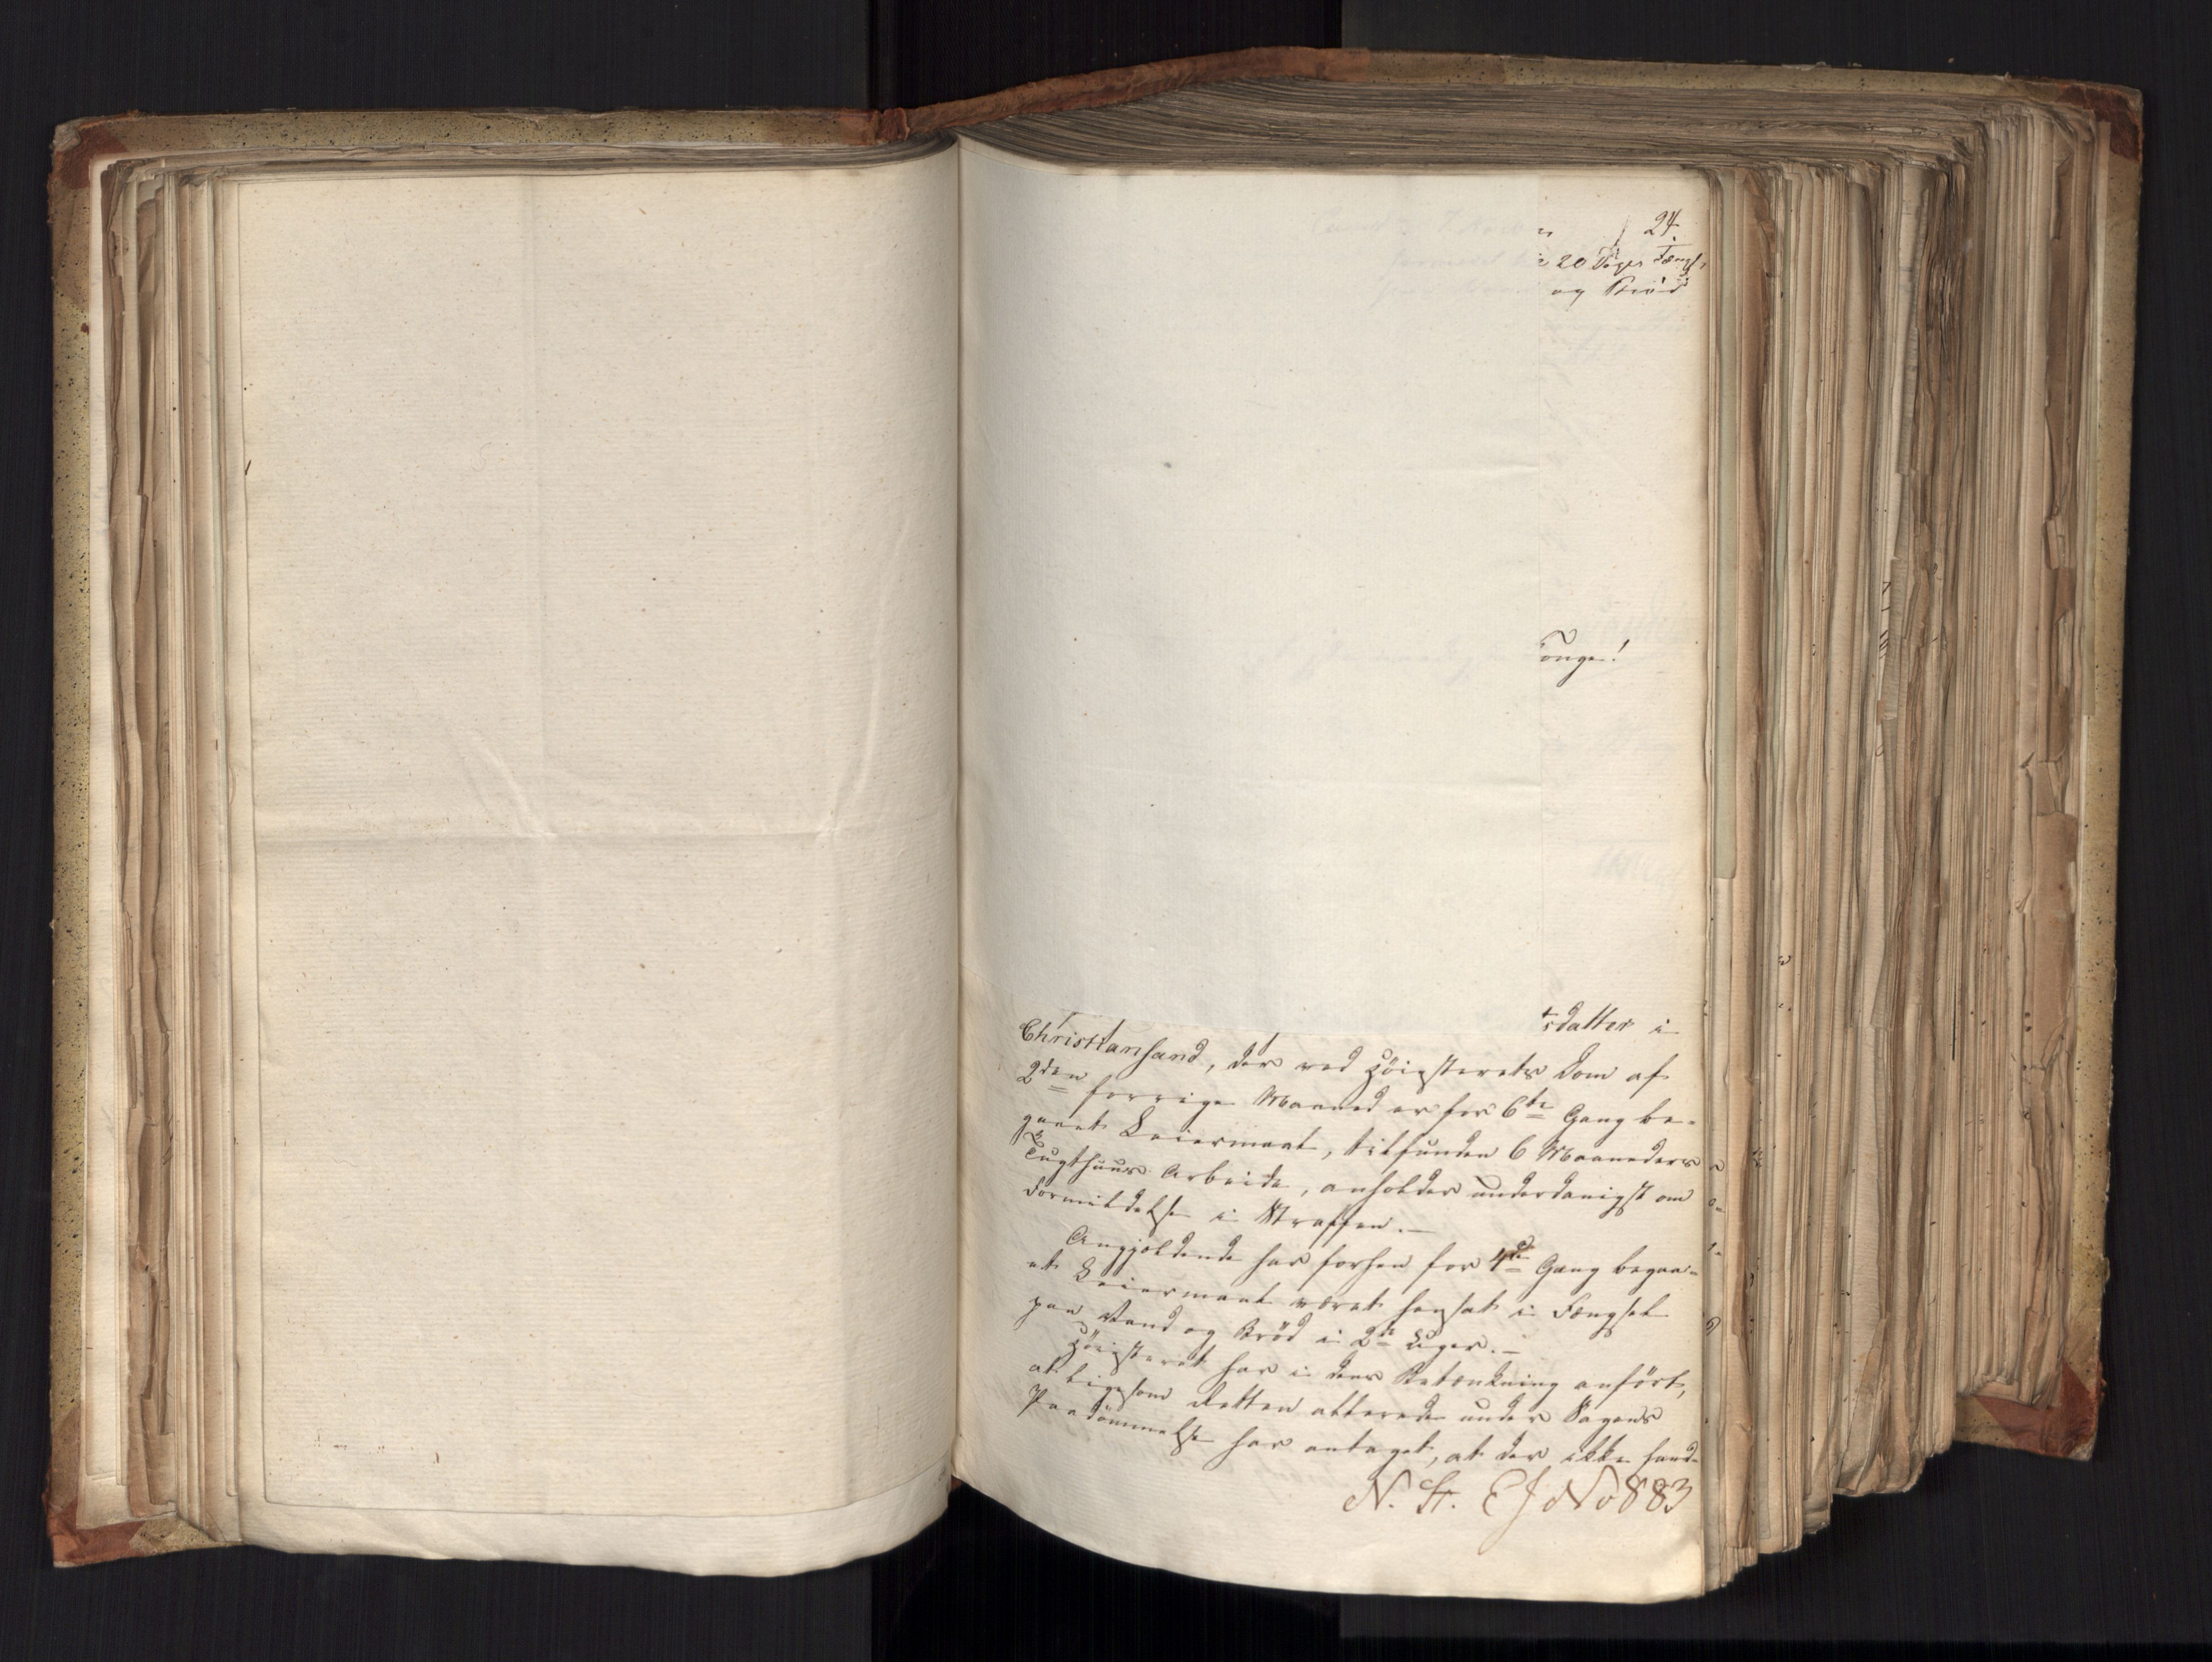 24.
20 Dages Fængs,
og Brød
Konge!
sdatter i
Christiansand, der ved Höiesterets Dom af
2den forrige Maaned er for 6te Gang be-
gaaet Leiermaal, tilfunden 6 Maaneders
Tugthuus Arbeide, anholder underdanigst om
Formildelse i Straffen.-
Angjældende har forhen for 4de Gang begaa-
et Leiermaal været hensat i Fængsel
paa Vand og Bröd i 2de Uger.-
Höiesteret har i dens Betænkning anført,
at ligesom Retten allerede under Sagens
Paadömmelse har antaget, at der ikke fand-
N. St. E J No 883